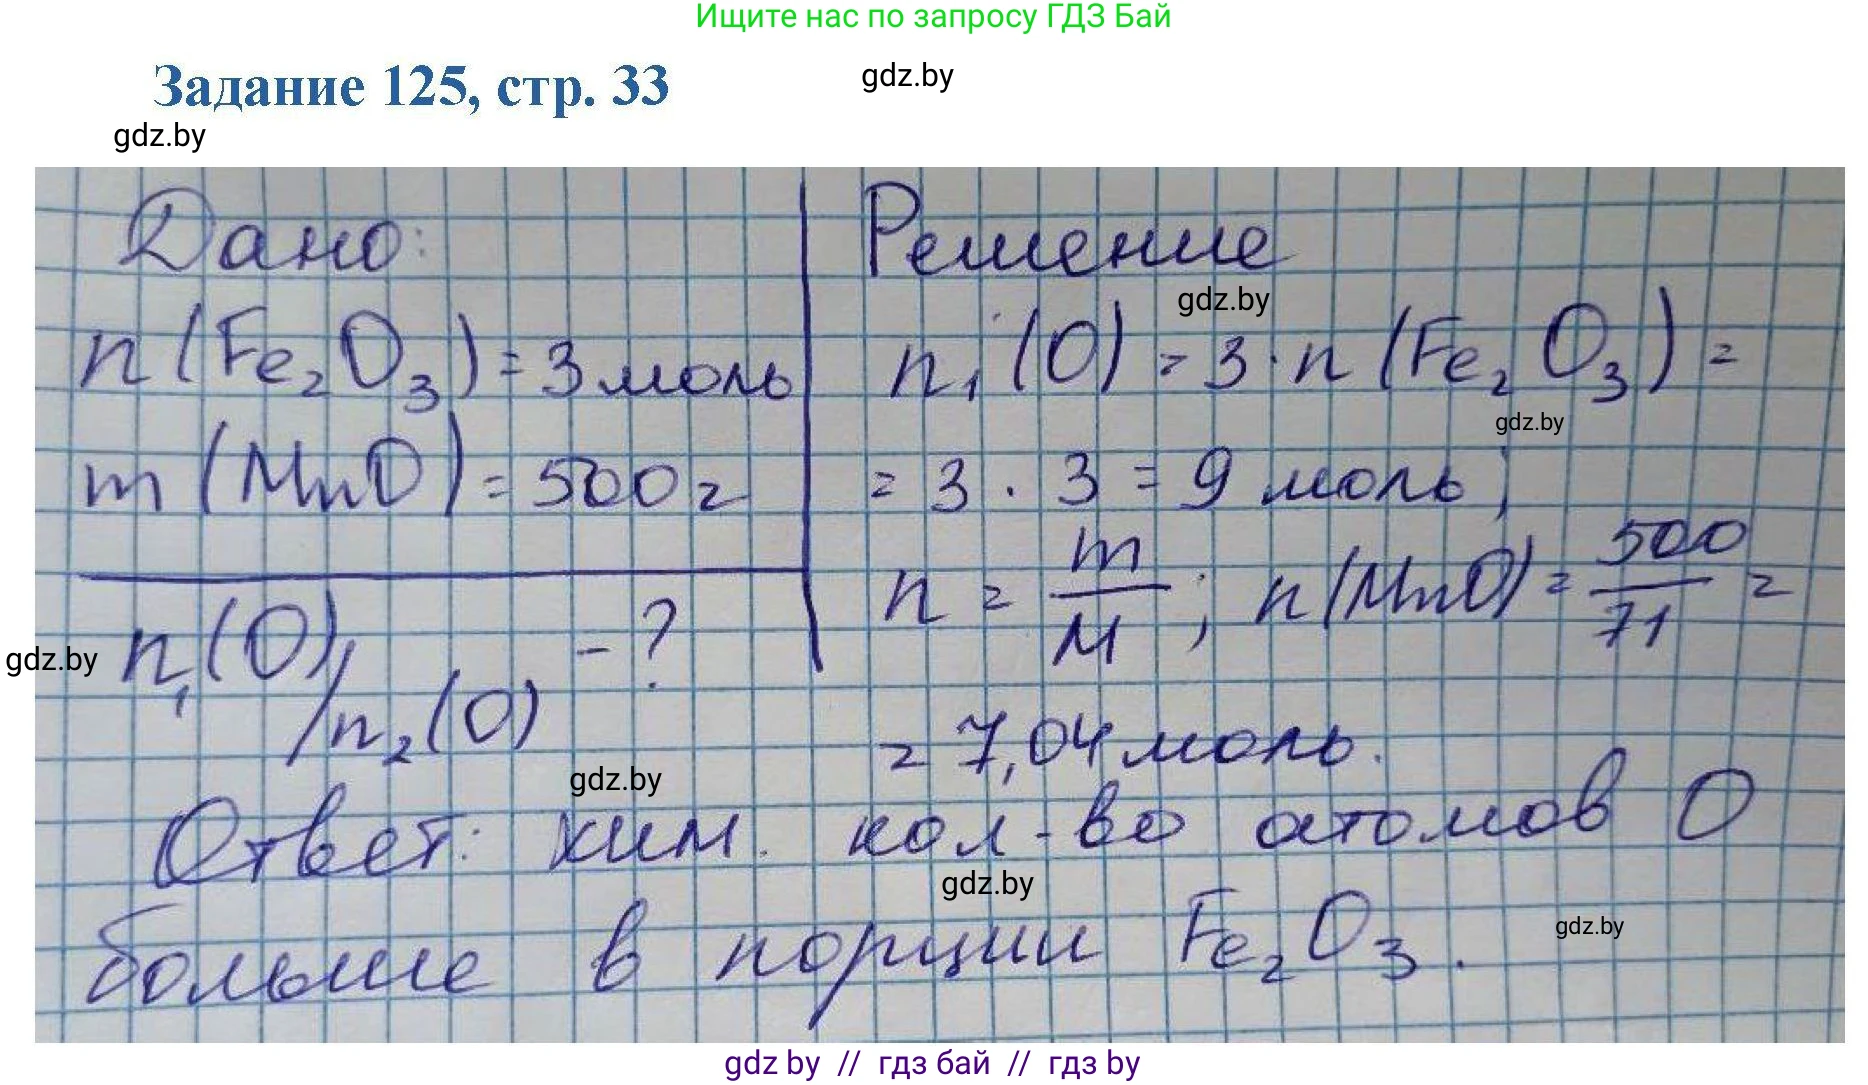 Ищите нас по запросу ГДЗ Бай
Задание 125, стр. 33
gdz.by
gdz.by
Дано:
n(Fe₂O₃) = 3 моль
m(MnO) = 500 г
n₁(O)/n₂(O) - ?
Решение
gdz.by
n₁(O) = 3 · n(Fe₂O₃) =
gdz.by
= 3 · 3 = 9 моль;
n = m/M; n(MnO) = 500/71 =
gdz.by
= 7,04 моль.
gdz.by
Ответ: хим. кол-во атомов O
gdz.by
больше в порции Fe₂O₃.
gdz.by
gdz by // гдз бай // гдз by